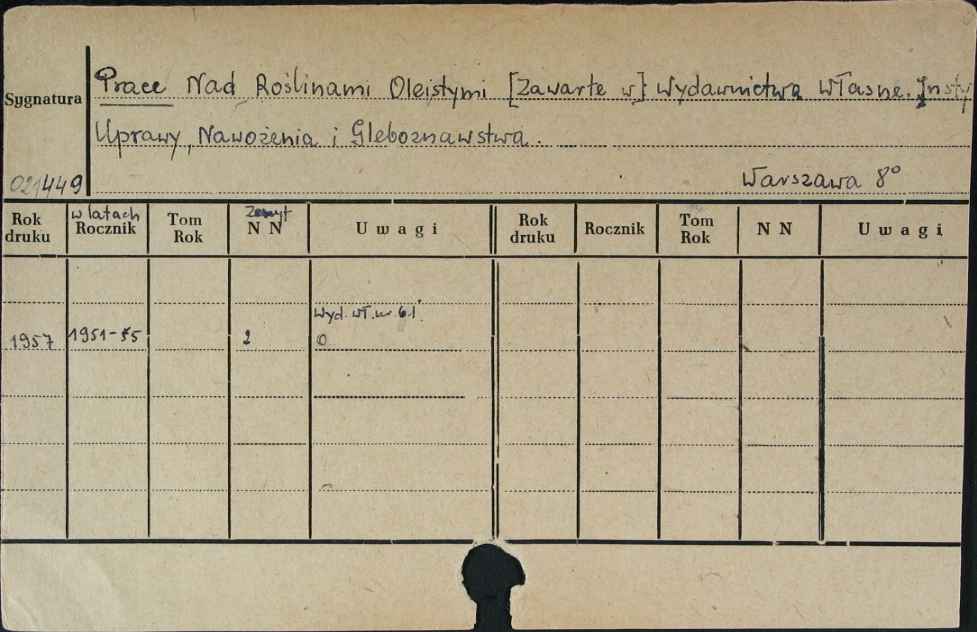 Prace Nad Roślinami Oleistymi [Zawarte w] Wydawnictwa Własne. Insty
Sygnatura
Uprawy, Nawożenia i Gleboznawstwa.
021449
Warszawa 8°
Rok druku w latach Rocznik Tom Rok Zeszyt N N Uwagi Rok druku Rocznik Tom Rok N N Uwagi
Wyd. wł. nr. 61.
1957 1951-55 2 0